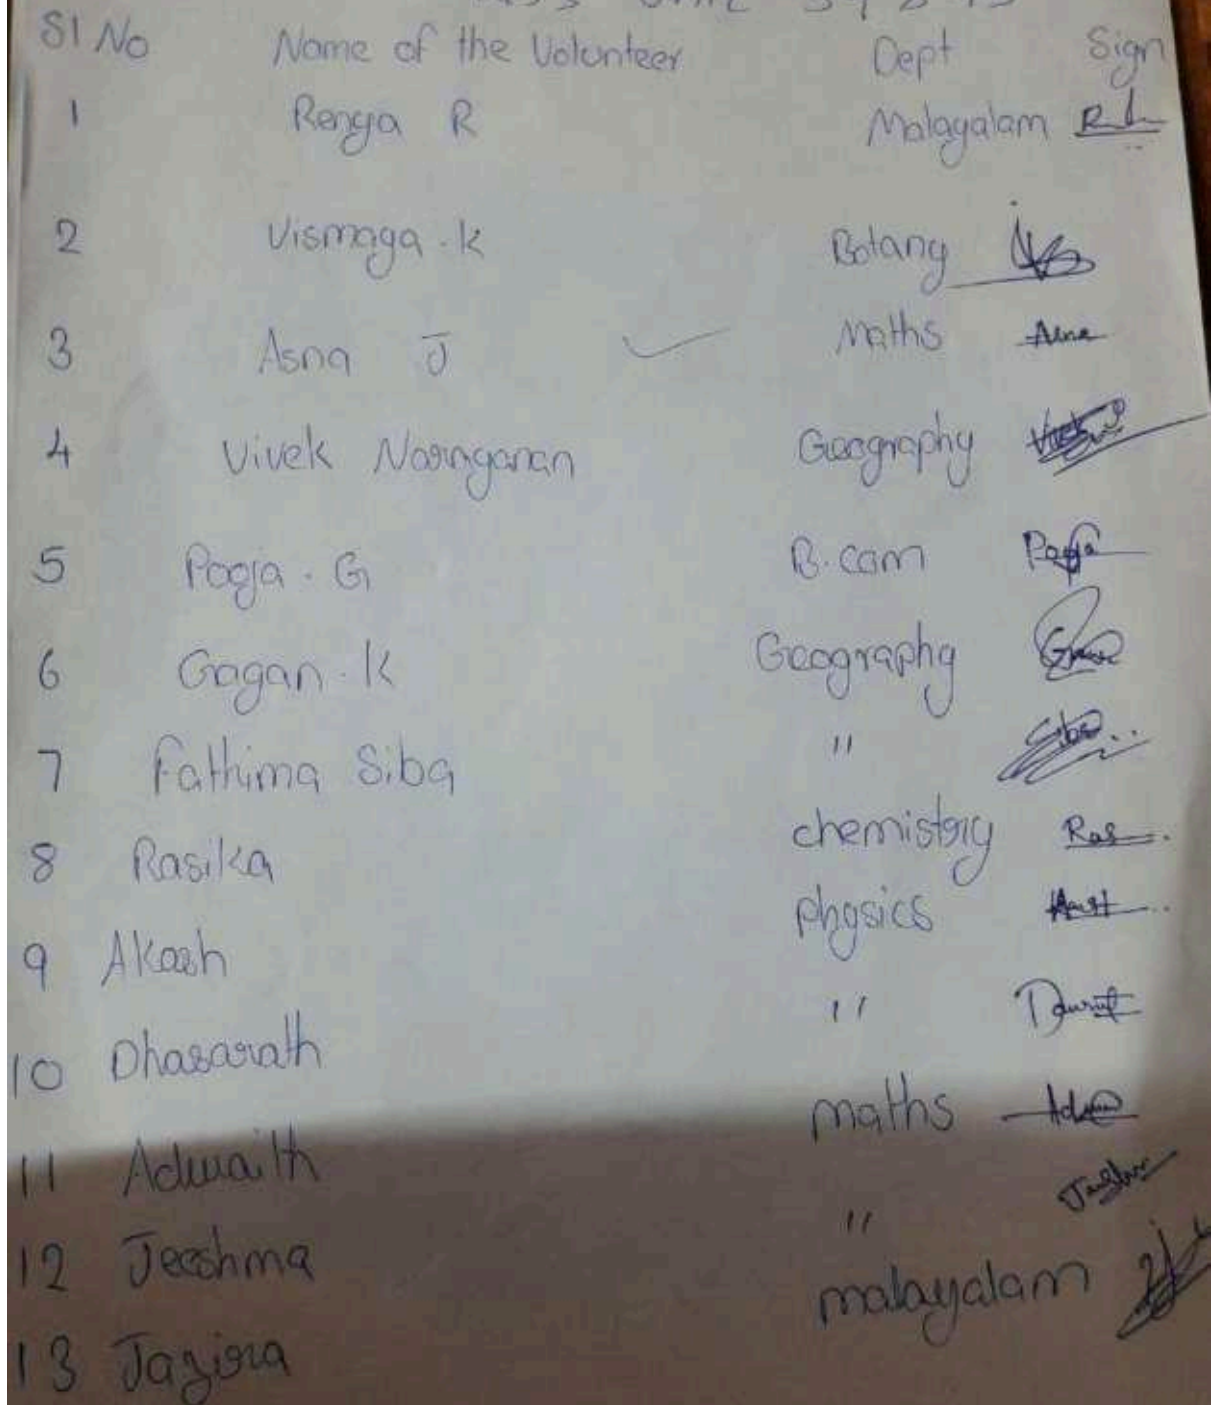 Sl No Name of the Volunteer Dept Sign
1 Renya R Malayalam
2 Vismaya . K Botany
3 Asna J Maths
4 Vivek Narayanan Geography
5 Pooja . G B.com Pooja
6 Gagan . K Geography
7 Fathima Siba " Siba
8 Rasika chemistry Ras
9 Akash physics
10 Dhasarath "
11 Adwaith maths
12 Jeeshma "
13 Jazira malayalam